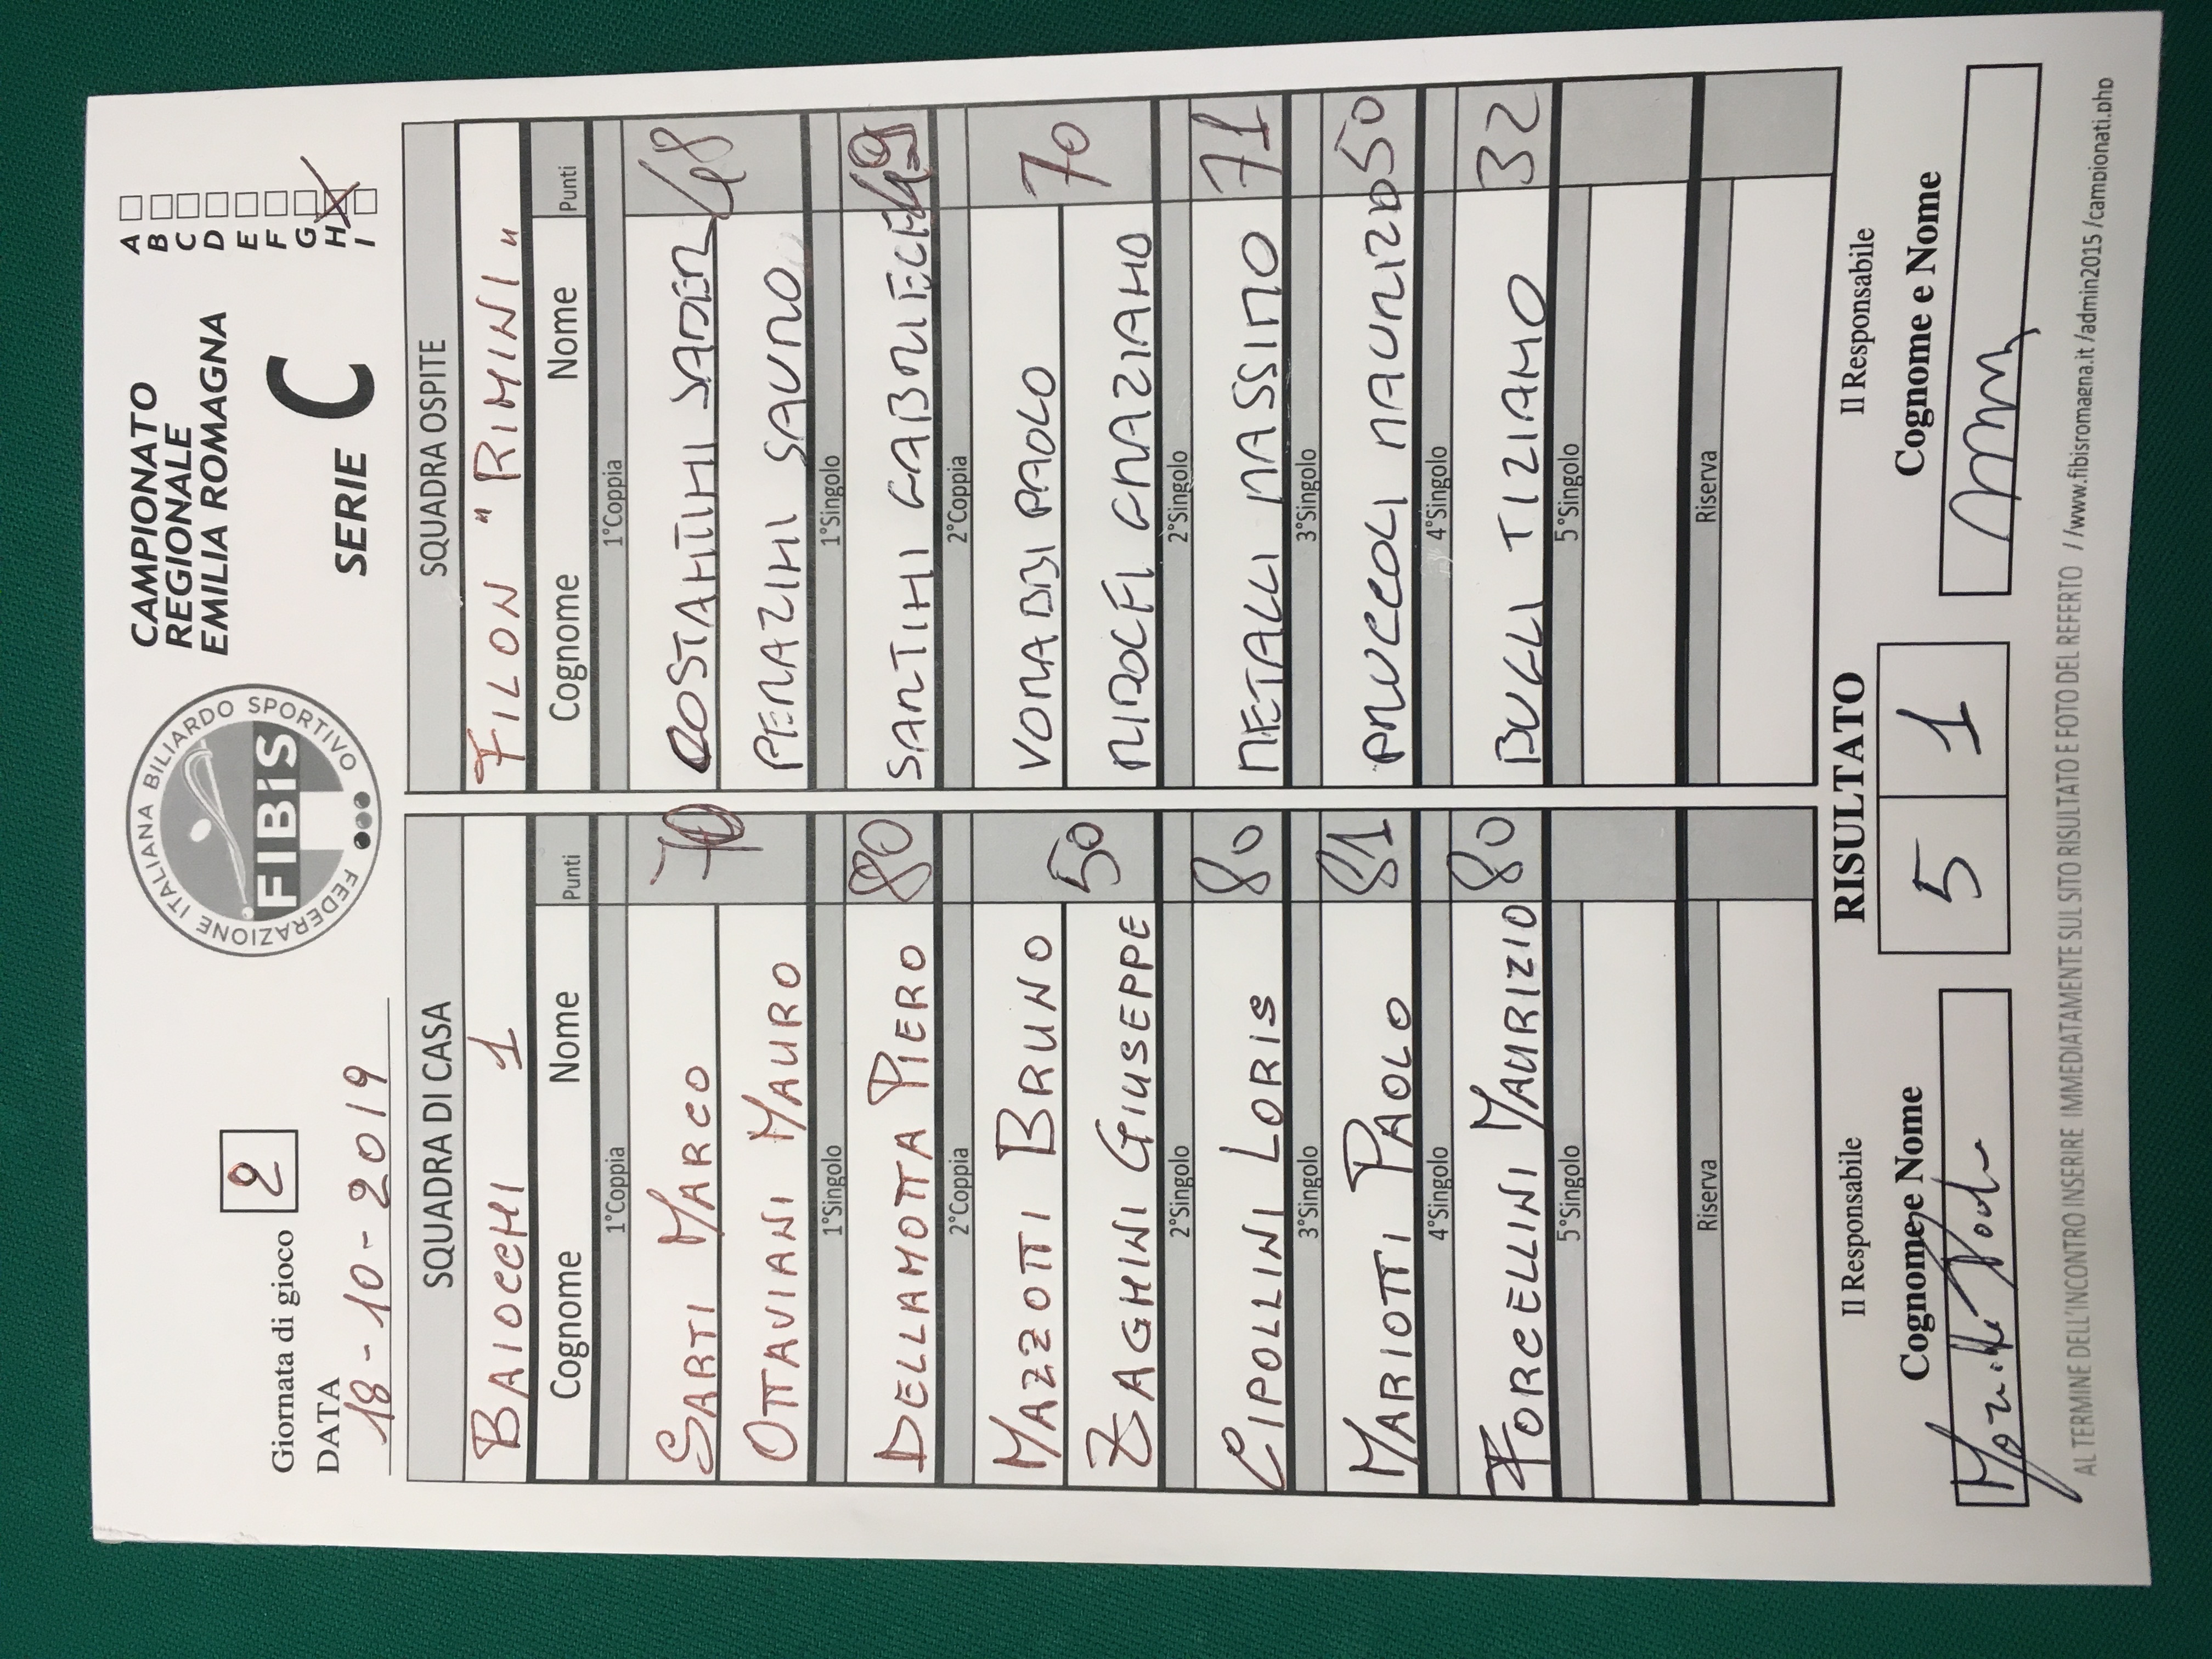 Giornata di gioco 2
DATA
18-10-2019
FEDERAZIONE ITALIANA BILIARDO SPORTIVO
FIBiS
CAMPIONATO
REGIONALE
EMILIA ROMAGNA
SERIE C
A
B
C
D
E
F
G
H
I
SQUADRA DI CASA SQUADRA OSPITE
BAIOCCHI 1 FILON "RIMINI"
Cognome Nome Punti Cognome Nome Punti
1°Coppia 1°Coppia
SARTI MARCO 70 COSTANTINI 48
OTTAVIANI MAURO PERAZINI SAURO
1°Singolo 1°Singolo
DELLAMOTTA PIERO 80 SARTINI 49
2°Coppia 2°Coppia
MAZZOTTI BRUNO 50 VORABBI PAOLO 70
ZAGHINI GIUSEPPE RIDOLFI GRAZIANO
2°Singolo 2°Singolo
CIPOLLINI LORIS 80 METALLI MASSIMO 71
3°Singolo 3°Singolo
MARIOTTI PAOLO 81 PRUCCOLI MAURIZIO 50
4°Singolo 4°Singolo
FORCELLINI MAURIZIO 80 BULLI TIZIANO 32
5°Singolo 5°Singolo
Riserva Riserva
Il Responsabile RISULTATO Il Responsabile
Cognome e Nome 5 1 Cognome e Nome
AL TERMINE DELL'INCONTRO INSERIRE IMMEDIATAMENTE SUL SITO RISULTATO E FOTO DEL REFERTO //www.fibisromagna.it/admin2015/campionati.php